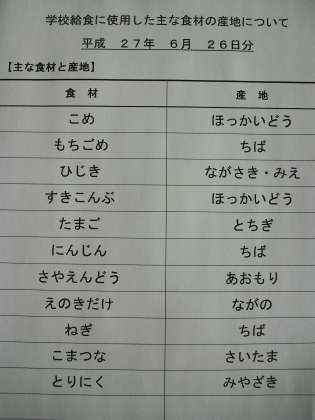 学校給食に使用した主な食材の産地について
平成　２７年　６月　２６日分
【主な食材と産地】
食　材　産　地
こめ　ほっかいどう
もちごめ　ちば
ひじき　ながさき・みえ
すきこんぶ　ほっかいどう
たまご　とちぎ
にんじん　ちば
さやえんどう　あおもり
えのきだけ　ながの
ねぎ　ちば
こまつな　さいたま
とりにく　みやざき